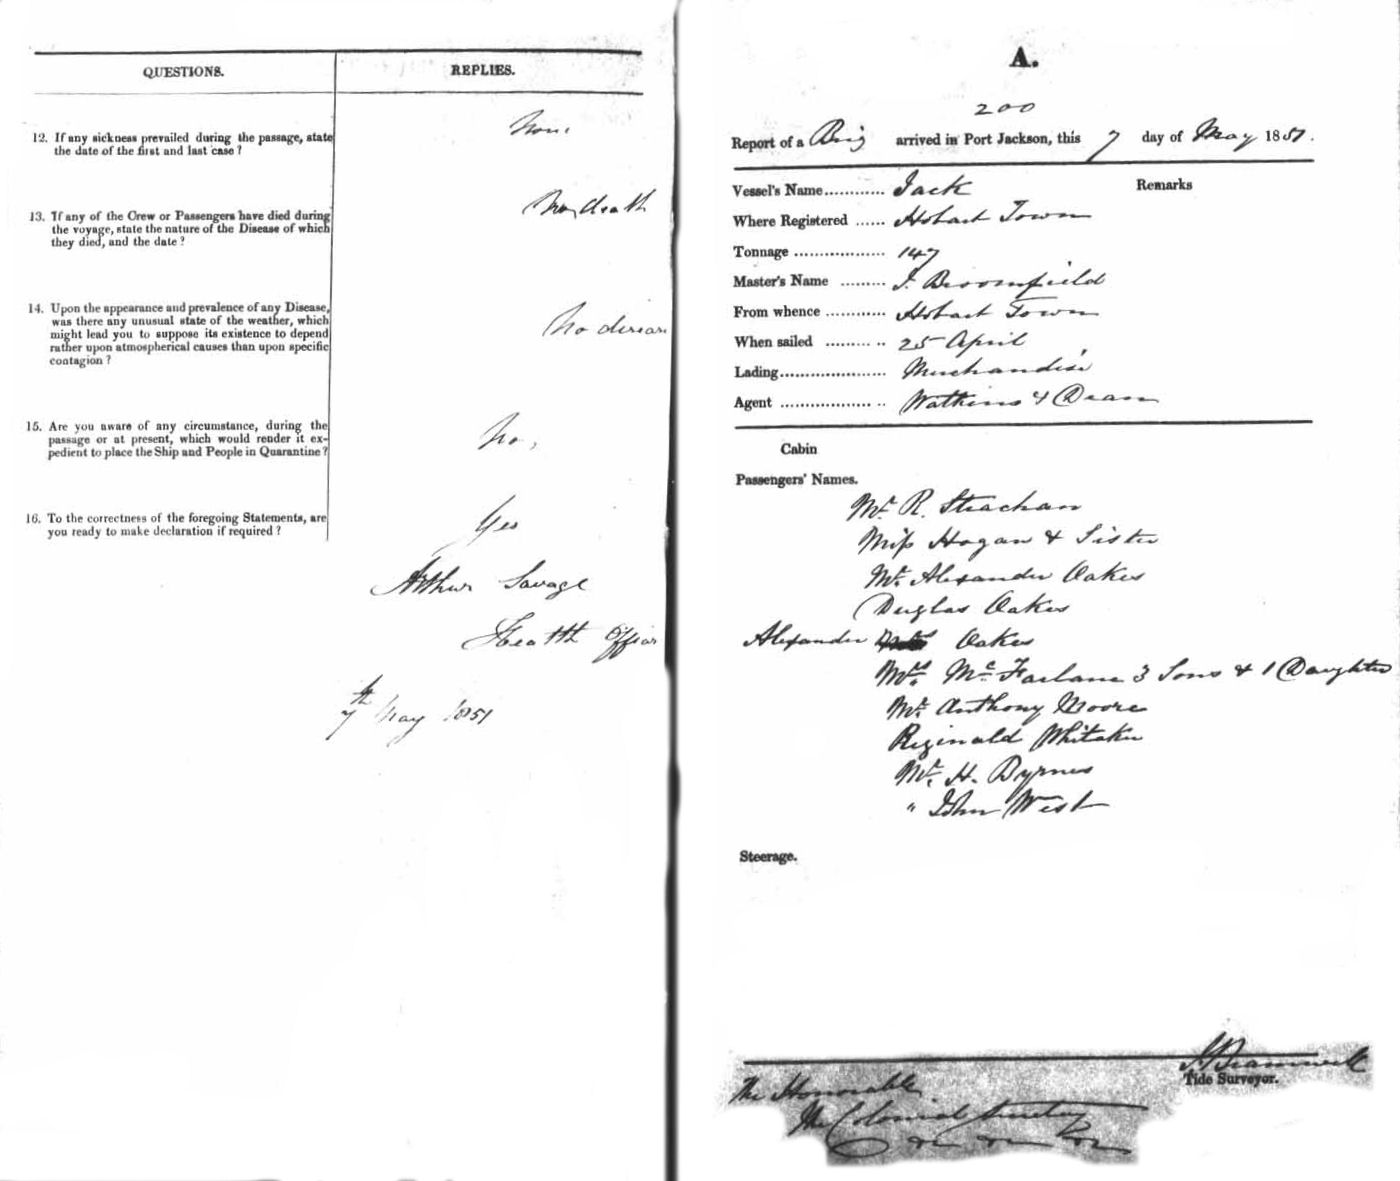 QUESTIONS. REPLIES.
12. If any sickness prevailed during the passage, state
the date of the first and last case ?
None
13. If any of the Crew or Passengers have died during
the voyage, state the nature of the Disease of which
they died, and the date ?
No death
14. Upon the appearance and prevalence of any Disease,
was there any unusual state of the weather, which
might lead you to suppose its existence to depend
rather upon atmospherical causes than upon specific
contagion ?
No disease
15. Are you aware of any circumstance, during the
passage or at present, which would render it ex-
pedient to place the Ship and People in Quarantine ?
No,
16. To the correctness of the foregoing Statements, are
you ready to make declaration if required ?
Yes
Arthur Savage
Health Officer
7th May 1851
A.
200
Report of a Brig arrived in Port Jackson, this 7 day of May 1851.
Vessel's Name............ Jack Remarks
Where Registered ...... Hobart Town
Tonnage .................. 147
Master's Name ......... J. Broomfield
From whence ............ Hobart Town
When sailed ......... .. 25 April
Lading..................... Merchandise
Agent ................. .. Watkins & Dean
Cabin
Passengers' Names.
Mr. R. Strachan
Miss Hogan & Sister
Mr. Alexander Oakes
Duglas Oakes
Alexander Oakes
Mrs. McFarlane 3 Sons & 1 Daughter
Mr. Anthony Moore
Reginald Whitaker
Mr. H. Byrnes
" John West
Steerage.
Bramwell
Tide Surveyor.
The Honorable
The Colonial Secretary